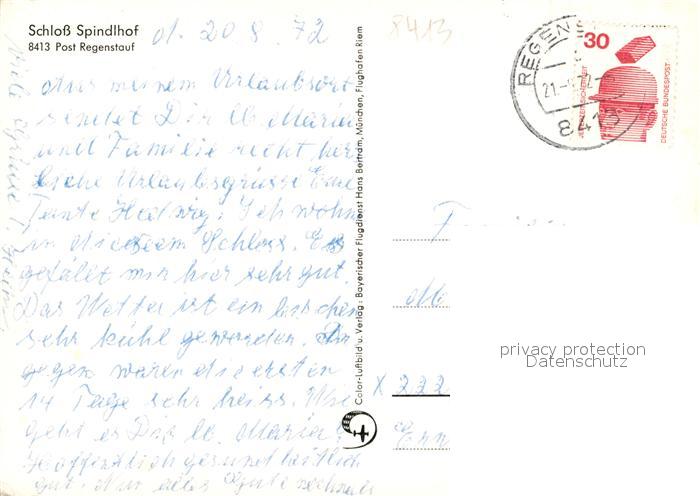 Schloß Spindlhof
8413 Post Regenstauf
d. 20 8. 72
8413
Aus meinem Urlaubsort
sendet Dir lb. Maria
und Familie recht herz
liche Urlaubsgrüsse Eure
Tante Hedwig. Ich wohne
in diesem Schloss. Es
gefällt mir hier sehr gut.
Das Wetter ist ein bischen
sehr kühl geworden. Da
gegen waren die ersten
14 Tage sehr heiss. Wie
geht es Dir lb. Maria?
Hoffentlich gesundheitlich
gut. Nur alles Gute nochmals
Viele Grüsse T.
Color-Luftbild u. Verlag: Bayerischer Flugdienst Hans Bertram, München, Flughafen Riem
REGENS
21.-8.72
8413
30
JEDERZEIT SICHERHEIT
DEUTSCHE BUNDESPOST
F
X 222
privacy protection
Datenschutz